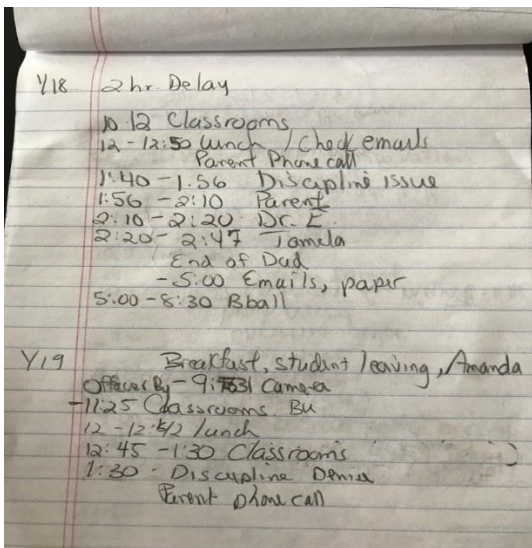 1/18 2 hr. Delay
10-12 Classrooms
12 - 12:50 lunch / Check emails
Parent Phone call
1:40 - 1:56 Discipline issue
1:56 - 2:10 Parent
2:10 - 2:20 Dr. E.
2:20 - 2:47 Tamela
End of Dad
- 5:00 Emails, paper
5:00 - 8:30 Bball
1/19 Breakfast, student leaving, Amanda
Officer By - 9: Camera
- 11:25 Classrooms BU
12 - lunch
12:45 - 1:30 Classrooms
1:30 - Discipline
Parent phone call